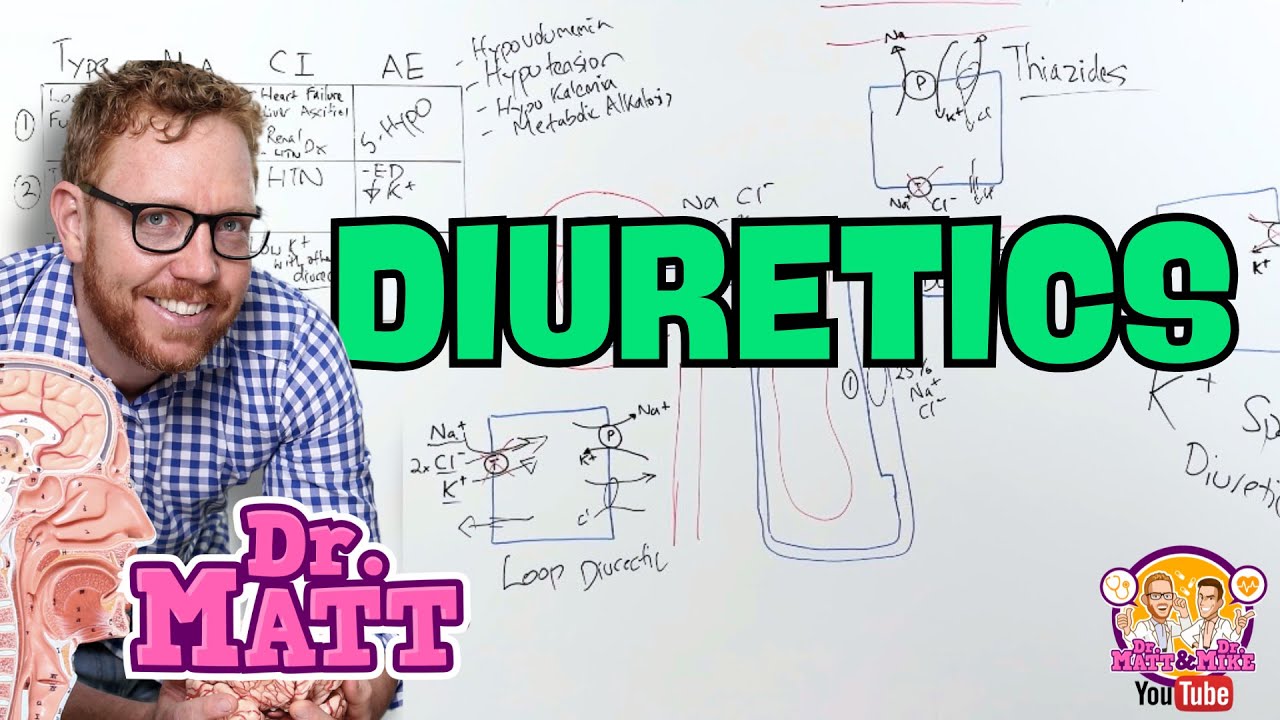 Type
CI
AE
①
Heart Failure
Liver Ascities
Renal Dx
- HTN
5. HYPO
- Hypovolumemia
- Hypotension
- Hypo Kalcemia
- Metabolic Alkalosis
②
HTN
-ED
↓ K+
Low K+
with other
DIURETICS
Na
P
K+
Cl
Thiazides
Na+
Cl-
Na Cl-
K+
K+
①
25%
Na+
Cl-
Na+
2x Cl-
K+
Na+
P
K+
Cl-
Loop Diurectic
K+ Sp
Diureti
Dr.
MATT
Dr. Dr.
MATT & MIKE
YouTube